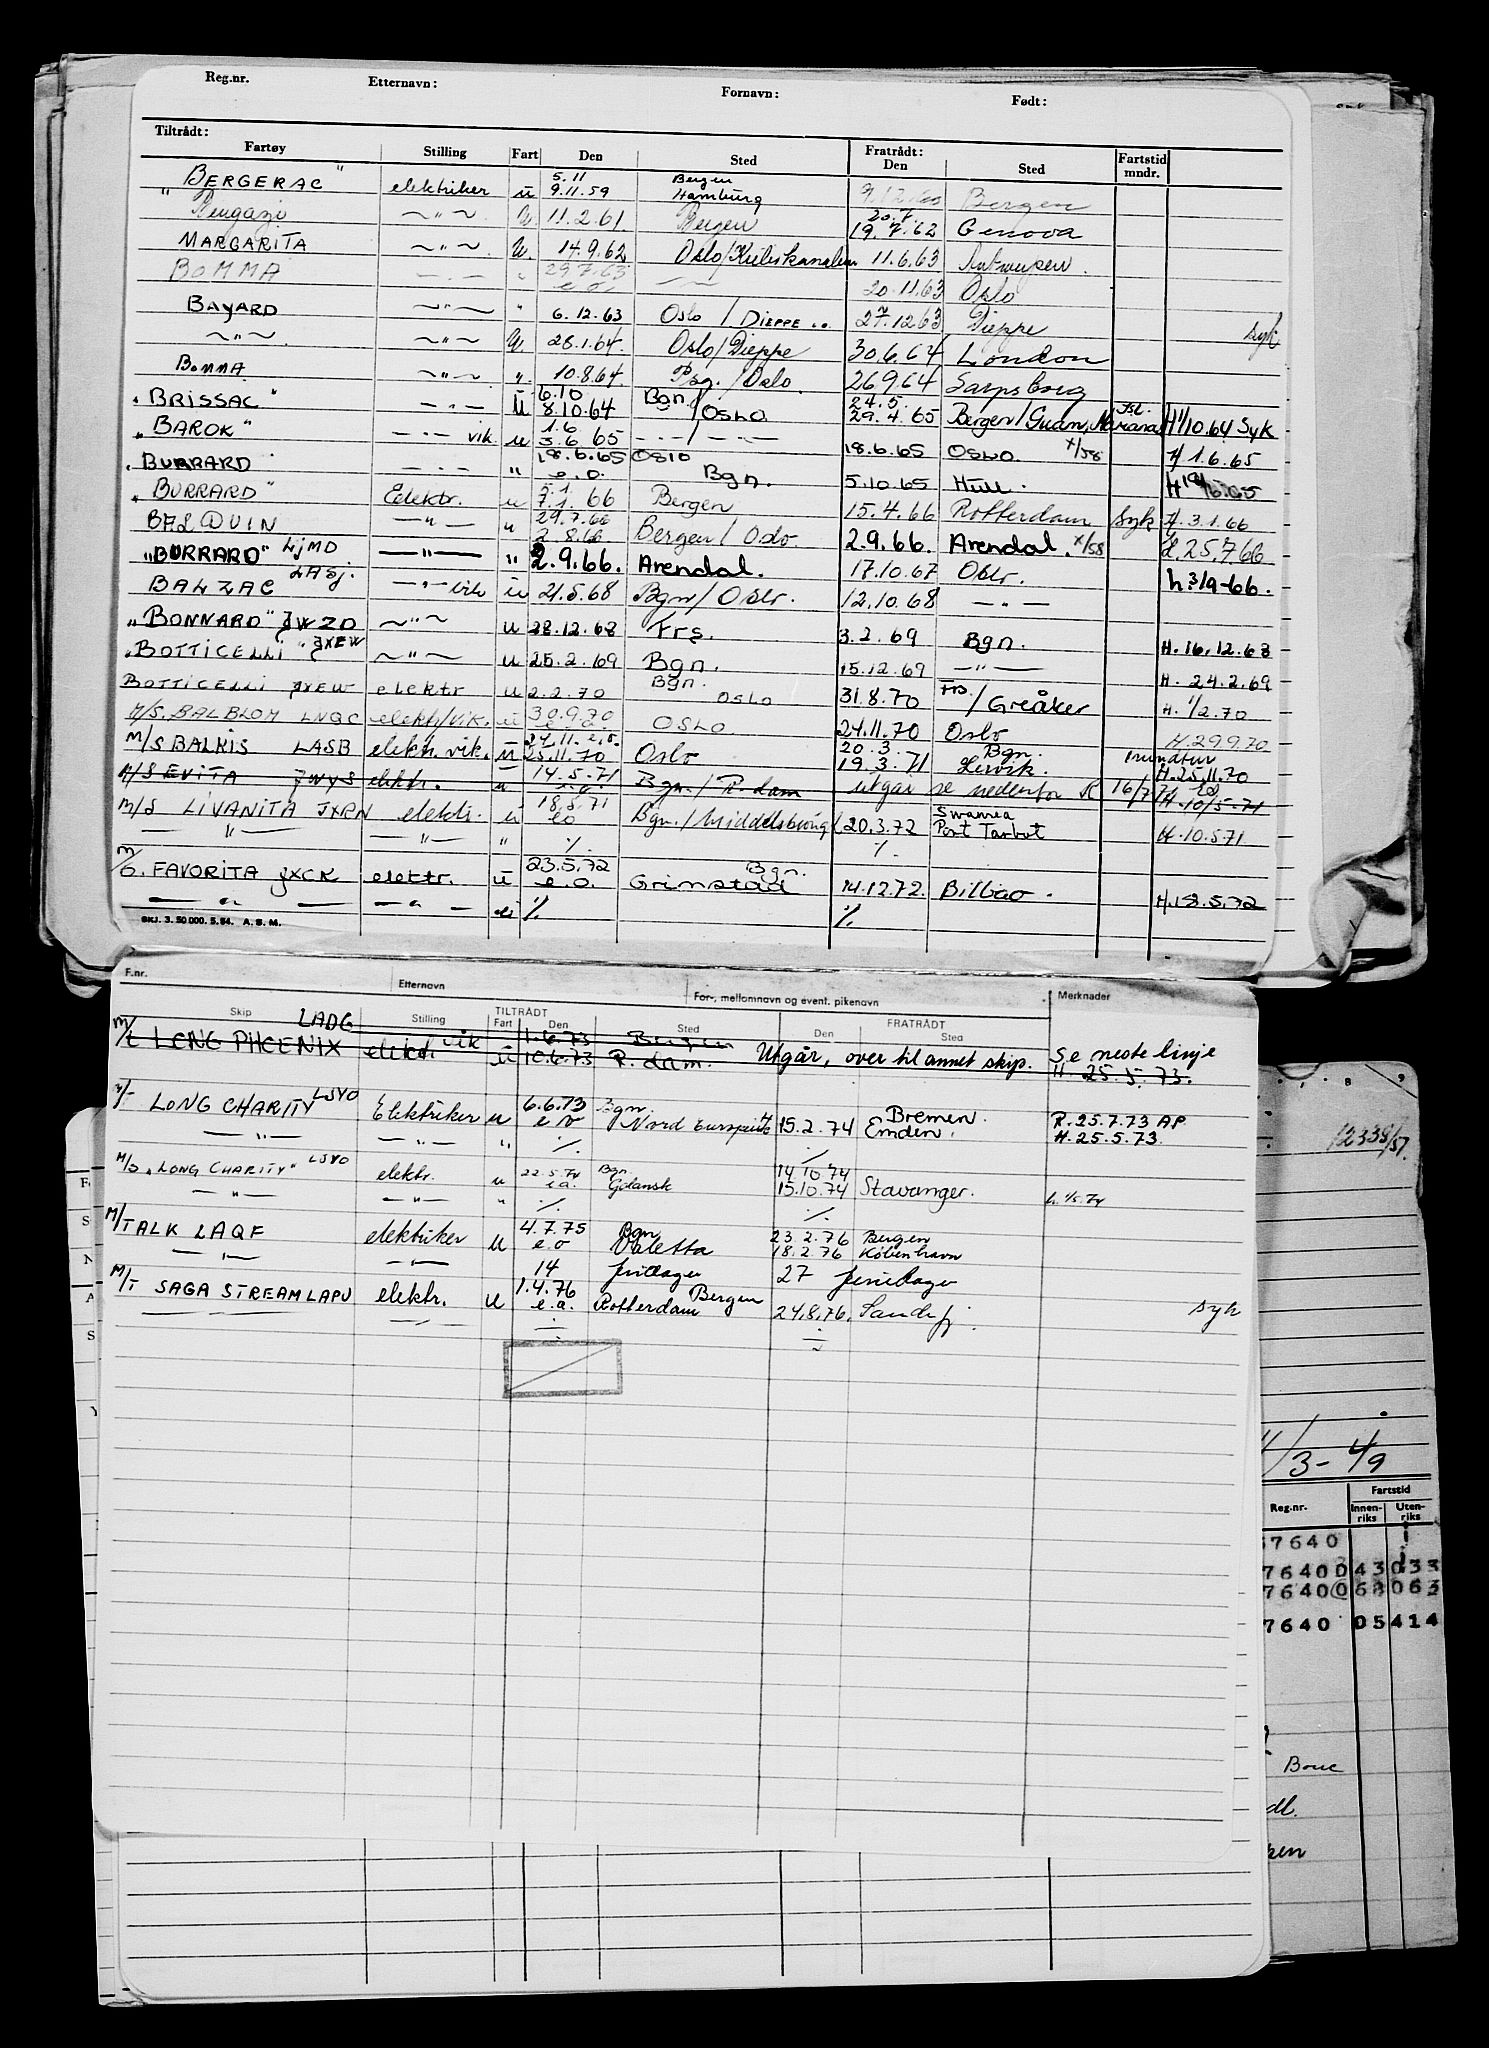 Reg.nr. Etternavn: Fornavn: Født:
Tiltrådt: Fratrådt: Fartstid
Fartøy Stilling Fart Den Sted Den Sted mndr.
5.11 Bergen
"BERGERAC" elektriker u 9.11.59 Hamburg 9.12.60 Bergen
20.7.
Bengazi —"— u. 11.2.61 Bergen 19.7.62 Genova
MARGARITA —"— u. 14.9.62 Oslo/Kielerkanalen 11.6.63 Antwerpen.
BOMMA —"— " 29.7.63 20.11.63 Oslo
BAYARD —"— " 6.12.63 Oslo / DIEPPE 27.12.63 Dieppe syk
—"— —"— u. 28.1.64. Oslo/Dieppe 30.6.64 London
BOMMA —"— ". 10.8.64. Psg./Oslo. 26.9.64 Sarpsborg
6.10 Bgn. 24.5.
"BRISSAC" —"— u 8.10.64 /OSLO 29.4.65 Bergen/Guam, Marianas H 1/10.64 Syk
1.6
"BAROK" —"— vik. u 3.6.65 —"—/—"— 18.6.65 OSLO. x/58 H 1.6.65
18.6.65 OSLO
"BURRARD" —"— " e.o. Bgn. 5.10.65 Hull.
5.1.
"BURRARD" Elektr. u 7.1.66 Bergen 15.4.66 Rotterdam syk H. 3.1.66
29.7.66
BALDUIN —"— " 2.8.66 Bergen/Oslo 2.9.66. Arendal. x/58 H. 25.7.66
"BURRARD" LJMD —"— " 2.9.66. Arendal. 17.10.67 Oslo. h. 3/9-66.
BALZAC LASJ. —"— vik u 21.5.68 Bgn/Oslo. 12.10.68 —"—
"BONNARD" JWZD —"— u 28.12.68 Frs. 3.2.69 Bgn. H. 16.12.68
"BOTTICELLI" JXEW —"— u 25.2.69 Bgn. 15.12.69 —"— H. 24.2.69
BOTTICELLI JXEW elektr u 2.2.70 Bgn. OSLO 31.8.70 Frs./Greåker H. 1/2.70
M/S. BALBLOM LNGC elektr/vik. u 30.9.70 e.o. OSLO 24.11.70 Oslo H. 29.9.70
24.11. e.o. 20.3. Bgn. rundtur
M/S BALKIS LASB elektr. vik. u 25.11.70 Oslo 19.3.71 Lervik. H. 25.11.70
M/S EVITA JWYS elektr. u 14.5.71 e.o. Bgn./R.dam utgår se nedenfor 16/7 H. 10/5-71
18.5.71 Swansea
M/S LIVANITA JXRN elektr. u eo Bgn./Middelsbrough 20.3.72 Port Tarbot H. 10.5.71
—"— —"— " ·/. ·/.
23.5.72 Bgn.
M/S. FAVORITA JXCK elektr. u e.o. Grimstad 14.12.72. Bilbao. H. 18.5.72
—"— —"— u ·/. ·/.
SKJ. 3. 50 000. 5.64. A. S. M.
F.nr. Etternavn For-, mellomnavn og event. pikenavn Merknader
TILTRÅDT FRATRÅDT
Skip Stilling Fart Den Sted Den Sted
LADG vik 1.6.73 Bergen
M/T LONG PHOENIX elektr. u 10.6.73 R.dam. Utgår, over til annet skip. se neste linje
H. 25.5.73.
6.6.73 Bgn. Bremen.
LONG CHARITY LSYO Elektriker u e o Nord Europeisk 15.2.74 Emden. R. 25.7.73 AP
—"— —"— " ·/. ·/. H. 25.5.73.
22.5.74 Bgn. 14.10.74
M/S "LONG CHARITY" LSYO elektr. u e.o. Gdansk 15.10.74 Stavanger.
—"— —"— " ·/. ·/.
4.7.75 Bgn 23.2.76 Bergen
M/T ALK LAQF elektriker u e.o Valetta 18.2.76 København
—"— —"— 14 feriedager 27 feriedage
1.4.76 Bergen
M/T SAGA STREAM LAPU elektr. u e.o. Rotterdam 24.8.76. Sandefj. syk
12338/57.
1/3-4/9
Fartstid
Reg.nr. Innen-riks Uten-riks
7640
76400 43 033
76400 68 063
7640 05414
Bouc
dl.
ken